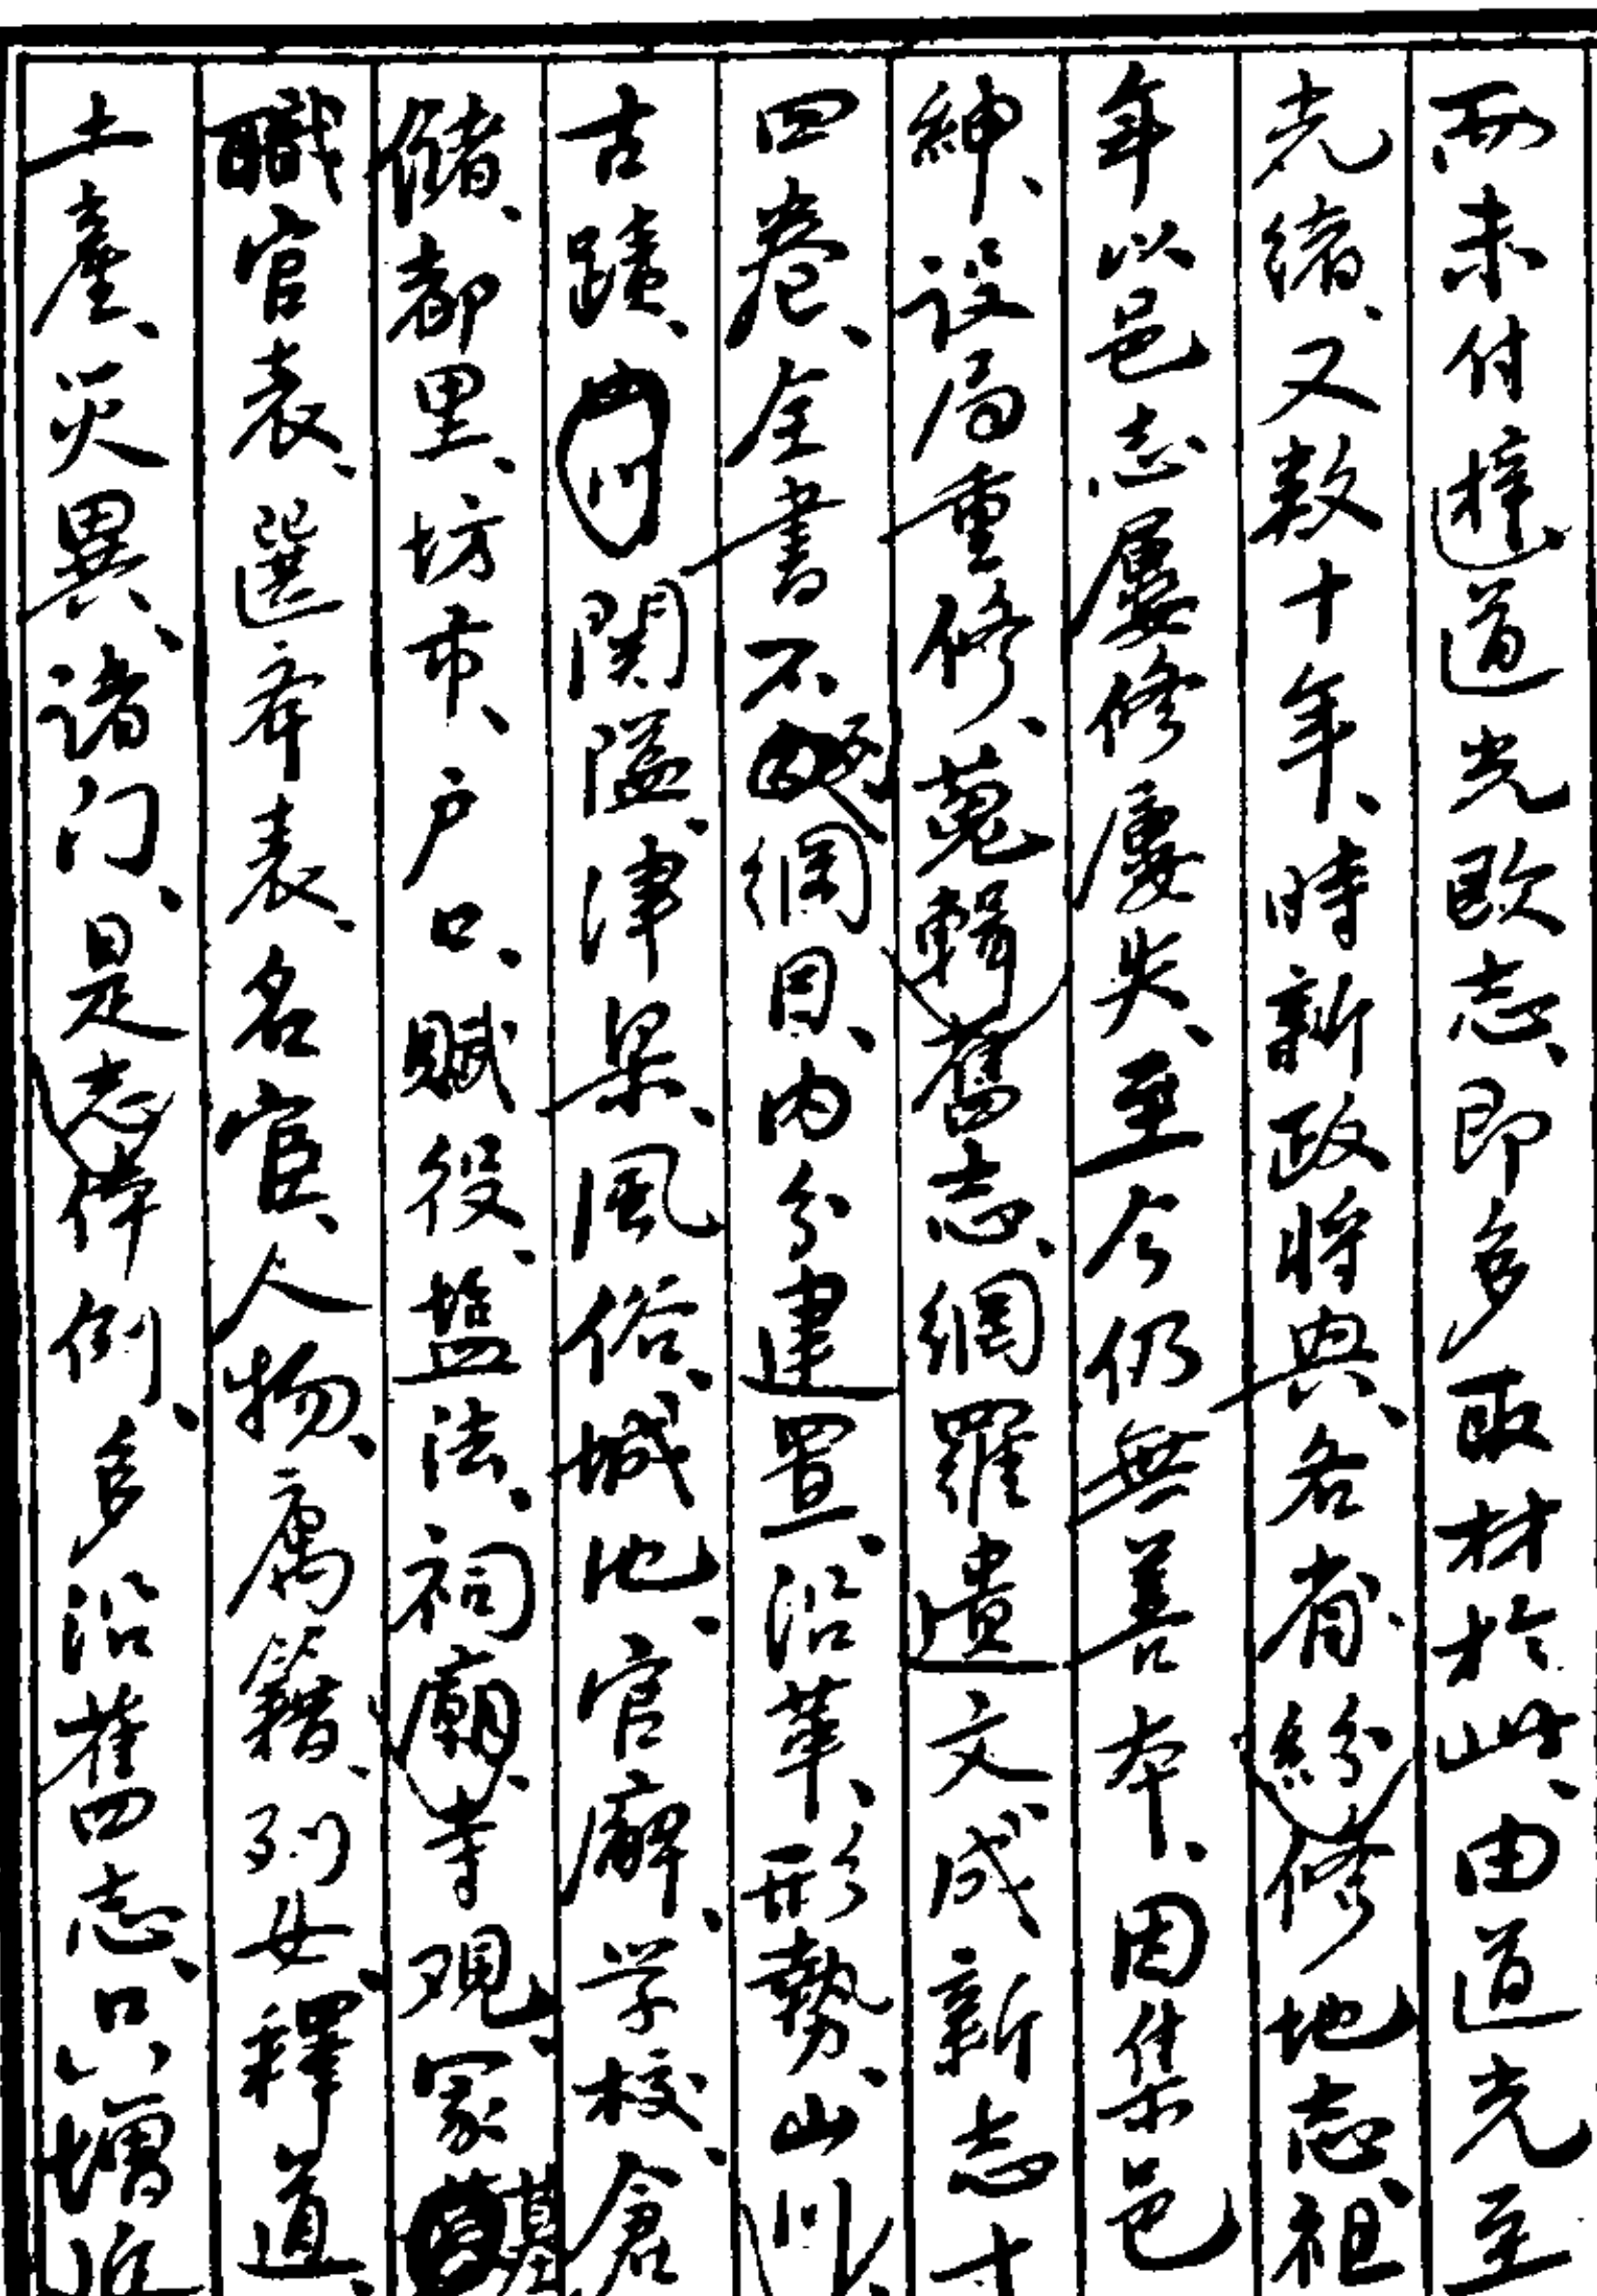 而未付梓道光歙志、即多取材於此、由道光至
光緒、又数十年、時新政将典、各省、紛修地志、祖
年以邑志屢修屢失、至今仍無善本、因集邑
紳、設局重修、蒐輯舊志、網羅遺文成新志十
四卷、全書不改綱目、内分建置、沿革、形勢、山川、
古蹟、関隘、津梁、風俗、城池、官廨、学校、倉
儲、都里、坊市、户口、賦役、盐法、祠廟、寺观、冢墓
職官表、選举表、名宦、人物、寓籍、列女、釋道、
土産、災異、諸门、是志体例、多沿舊四志、只增